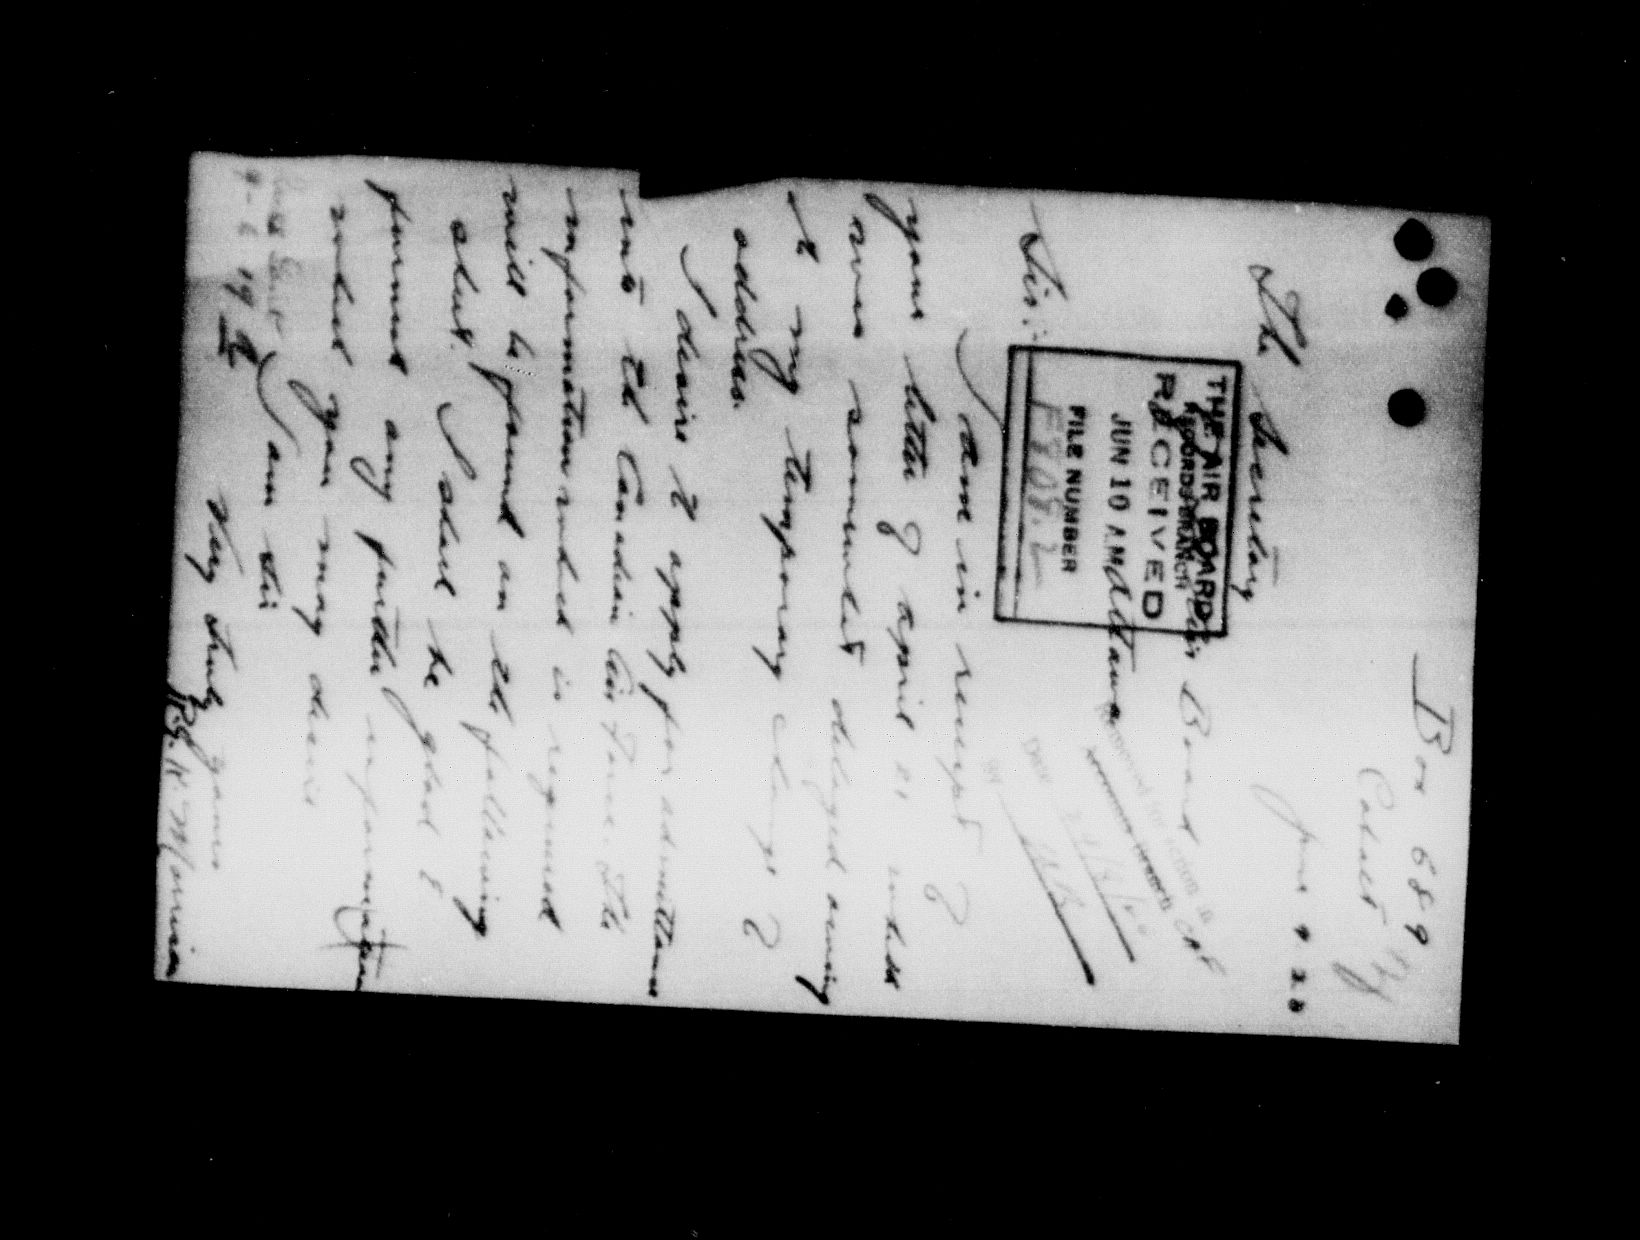 Box 689
June 9 20
The Secretary
Air Board
Ottawa
THE AIR BOARD
RECORDS BRANCH
RECEIVED
JUN 10 AM
FILE NUMBER
Sir:
I am in receipt of
your letter of April 21 which
was somewhat delayed owing
to my temporary change of
address.
I desire to apply for admittance
into the Canadian Air Force. The
information which is required
will be found on the following
sheet. I shall be glad to
furnish any further information
which you may desire
I am Sir
Very truly yours